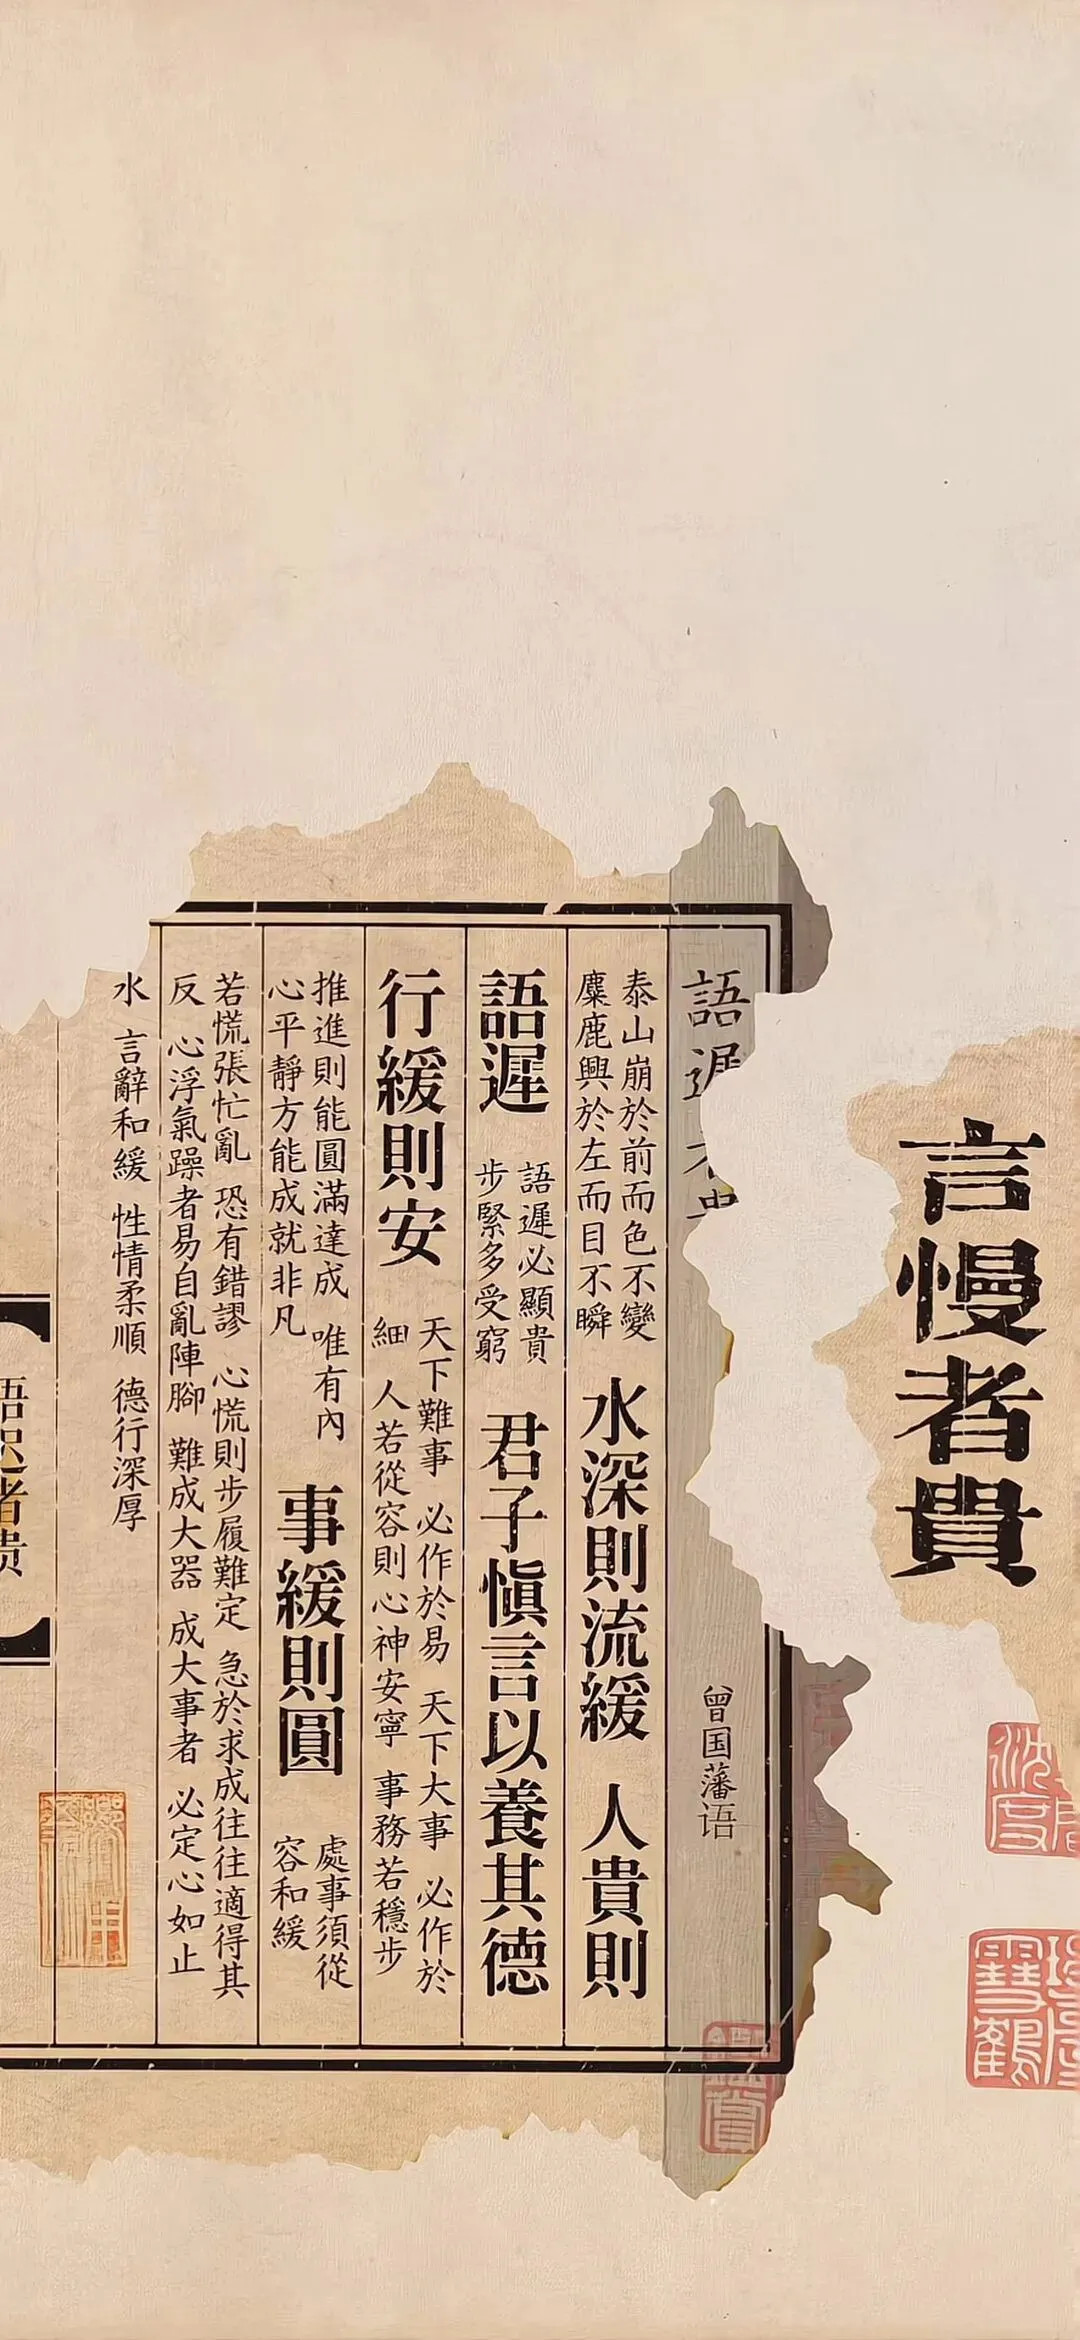 言慢者貴
語遲
曾国藩语
泰山崩於前而色不變
麋鹿興於左而目不瞬
水深則流緩 人貴則
語遲
語遲必顯貴
步緊多受窮
君子慎言以養其德
行緩則安
天下難事 必作於易 天下大事 必作於
細 人若從容則心神安寧 事務若穩步
推進則能圓滿達成 唯有內
心平靜方能成就非凡
事緩則圓
處事須從
容和緩
若慌張忙亂 恐有錯謬 心慌則步履難定 急於求成往往適得其
反 心浮氣躁者易自亂陣腳 難成大器 成大事者 必定心如止
水 言辭和緩 性情柔順 德行深厚